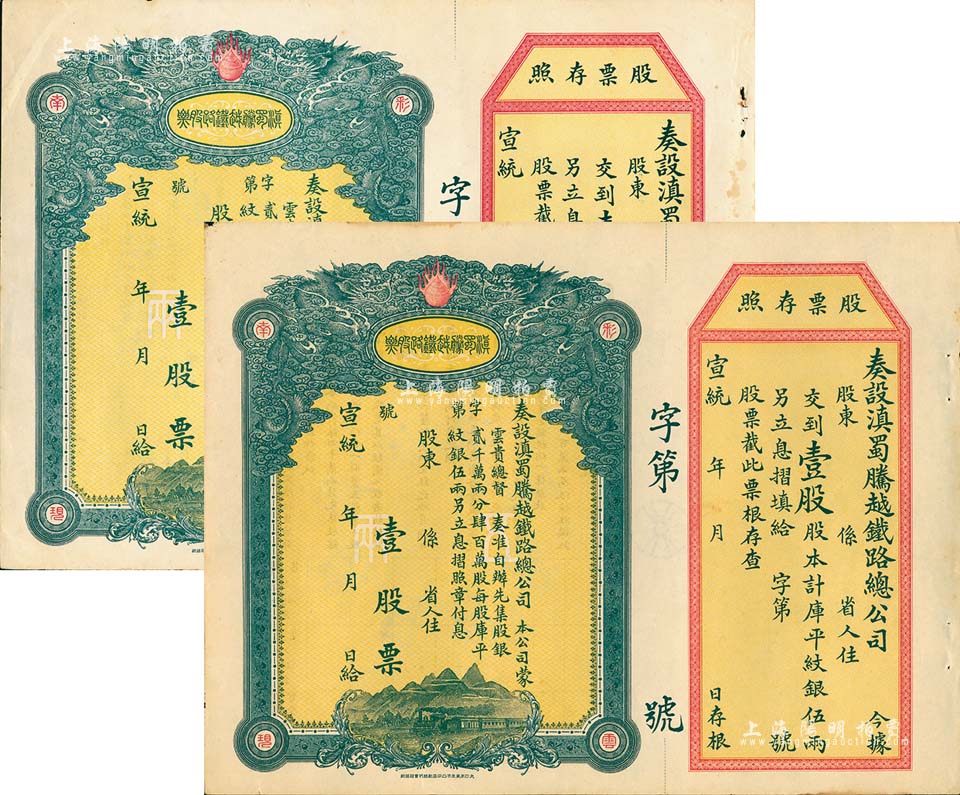 上海陽明拍賣
www.yangmingauction.com
股票存照
彩
南
滇蜀騰越鐵路股票
奏設滇蜀
股東
交到
另立息
股票截
宣統
字
奏設滇
雲
字
第
貳
紋
股
號
宣統
年
月
日給
壹股票
碧
股票存照
奏設滇蜀騰越鐵路總公司 今據
股東 係 省人住
交到壹股股本計庫平紋銀伍兩
另立息摺填給 字第 號
股票截此票根存查
宣統 年 月 日存根
字第 號
彩
雲
南
碧
滇蜀騰越鐵路股票
奏設滇蜀騰越鐵路總公司 本公司蒙
雲貴總督 奏准自辦先集股銀
貳千萬兩分肆百萬股每股庫平
紋銀伍兩另立息摺照章付息
字
第
號
股東 係 省人住
壹股票
宣統 年 月 日給
伍
兩
上海陽明拍賣
www.yangmingauction.com
上海陽明拍賣
www.yangmingauction.com